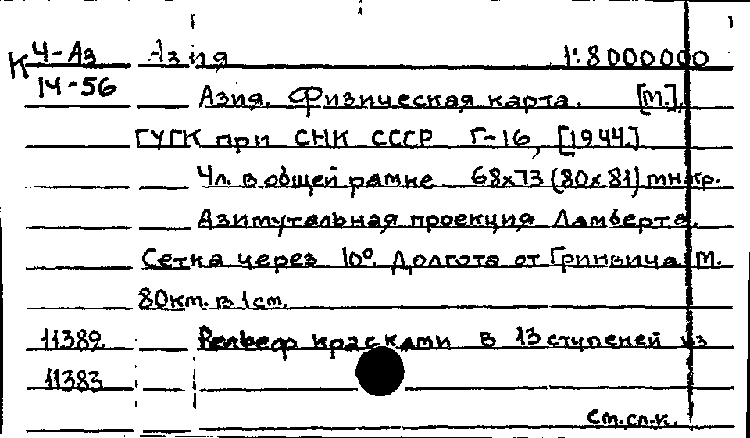 К Ч-Аз Азия 1:8000000
14-56 Азия. Физическая карта. [М.],
ГУГК при СНК СССР Г-16, [1944.]
4л. в общей рамке 68х73 (80х81) мн.кр.
Азимутальная проекция Ламберта.
Сетка через 10°. Долгота от Гринвича М.
80км. в 1см.
11382 Рельеф красками в 13 ступеней из
11383
см.сл.к.